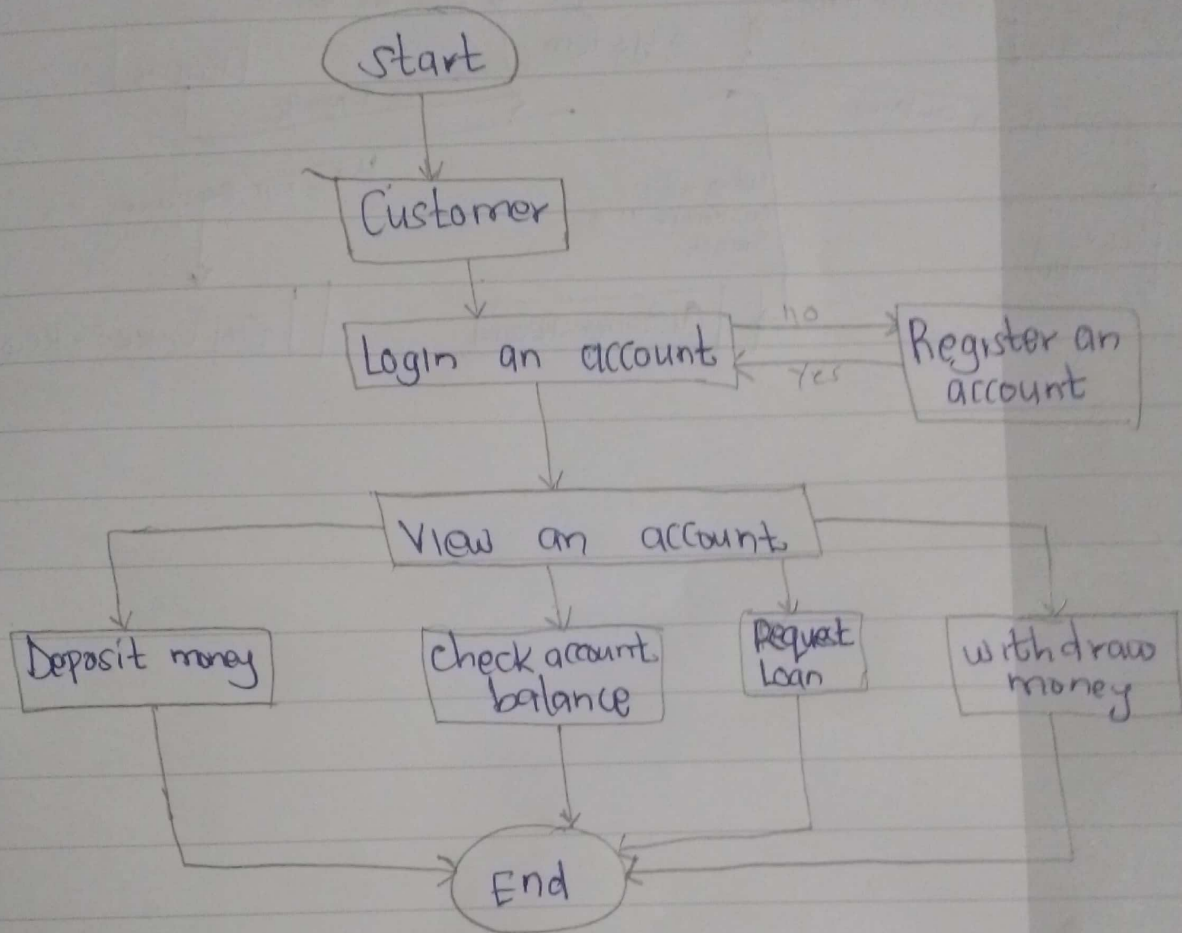 Start
Customer
Login an account
no
Yes
Register an
account
View an account
Deposit money
Check account
balance
Request
Loan
withdraw
money
End